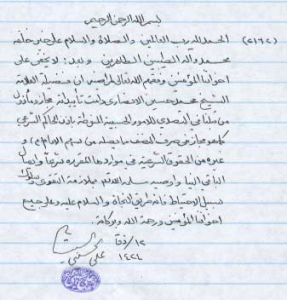 بسم الله الرحمن الرحيم
(٢١٦٢) الحمد لله رب العالمين والصلاة والسلام على خير خلقه
محمد وآله الطيبين الطاهرين وبعد: لا يخفى على
اخواننا المؤمنين وفقهم الله تعالى ان فضيلة العلامة
الشيخ محمد حسين الانصاري دامت تأييداته مجاز ومأذون
من قبلنا في التصدي للامور الحسبية المنوطة باذن الحاكم الشرعي
كما هو مجاز في صرف النصف مما يصله من سهم الامام (ع)
وغيره من الحقوق الشرعية في مواردها المقررة شرعاً وايصال
الباقي الينا واوصيه سلمه الله تعالى بملازمة التقوى وسلوك
سبيل الاحتياط فانه طريق النجاة والسلام عليه وعلى جميع
اخواننا المؤمنين ورحمة الله وبركاته
١٤٢٤